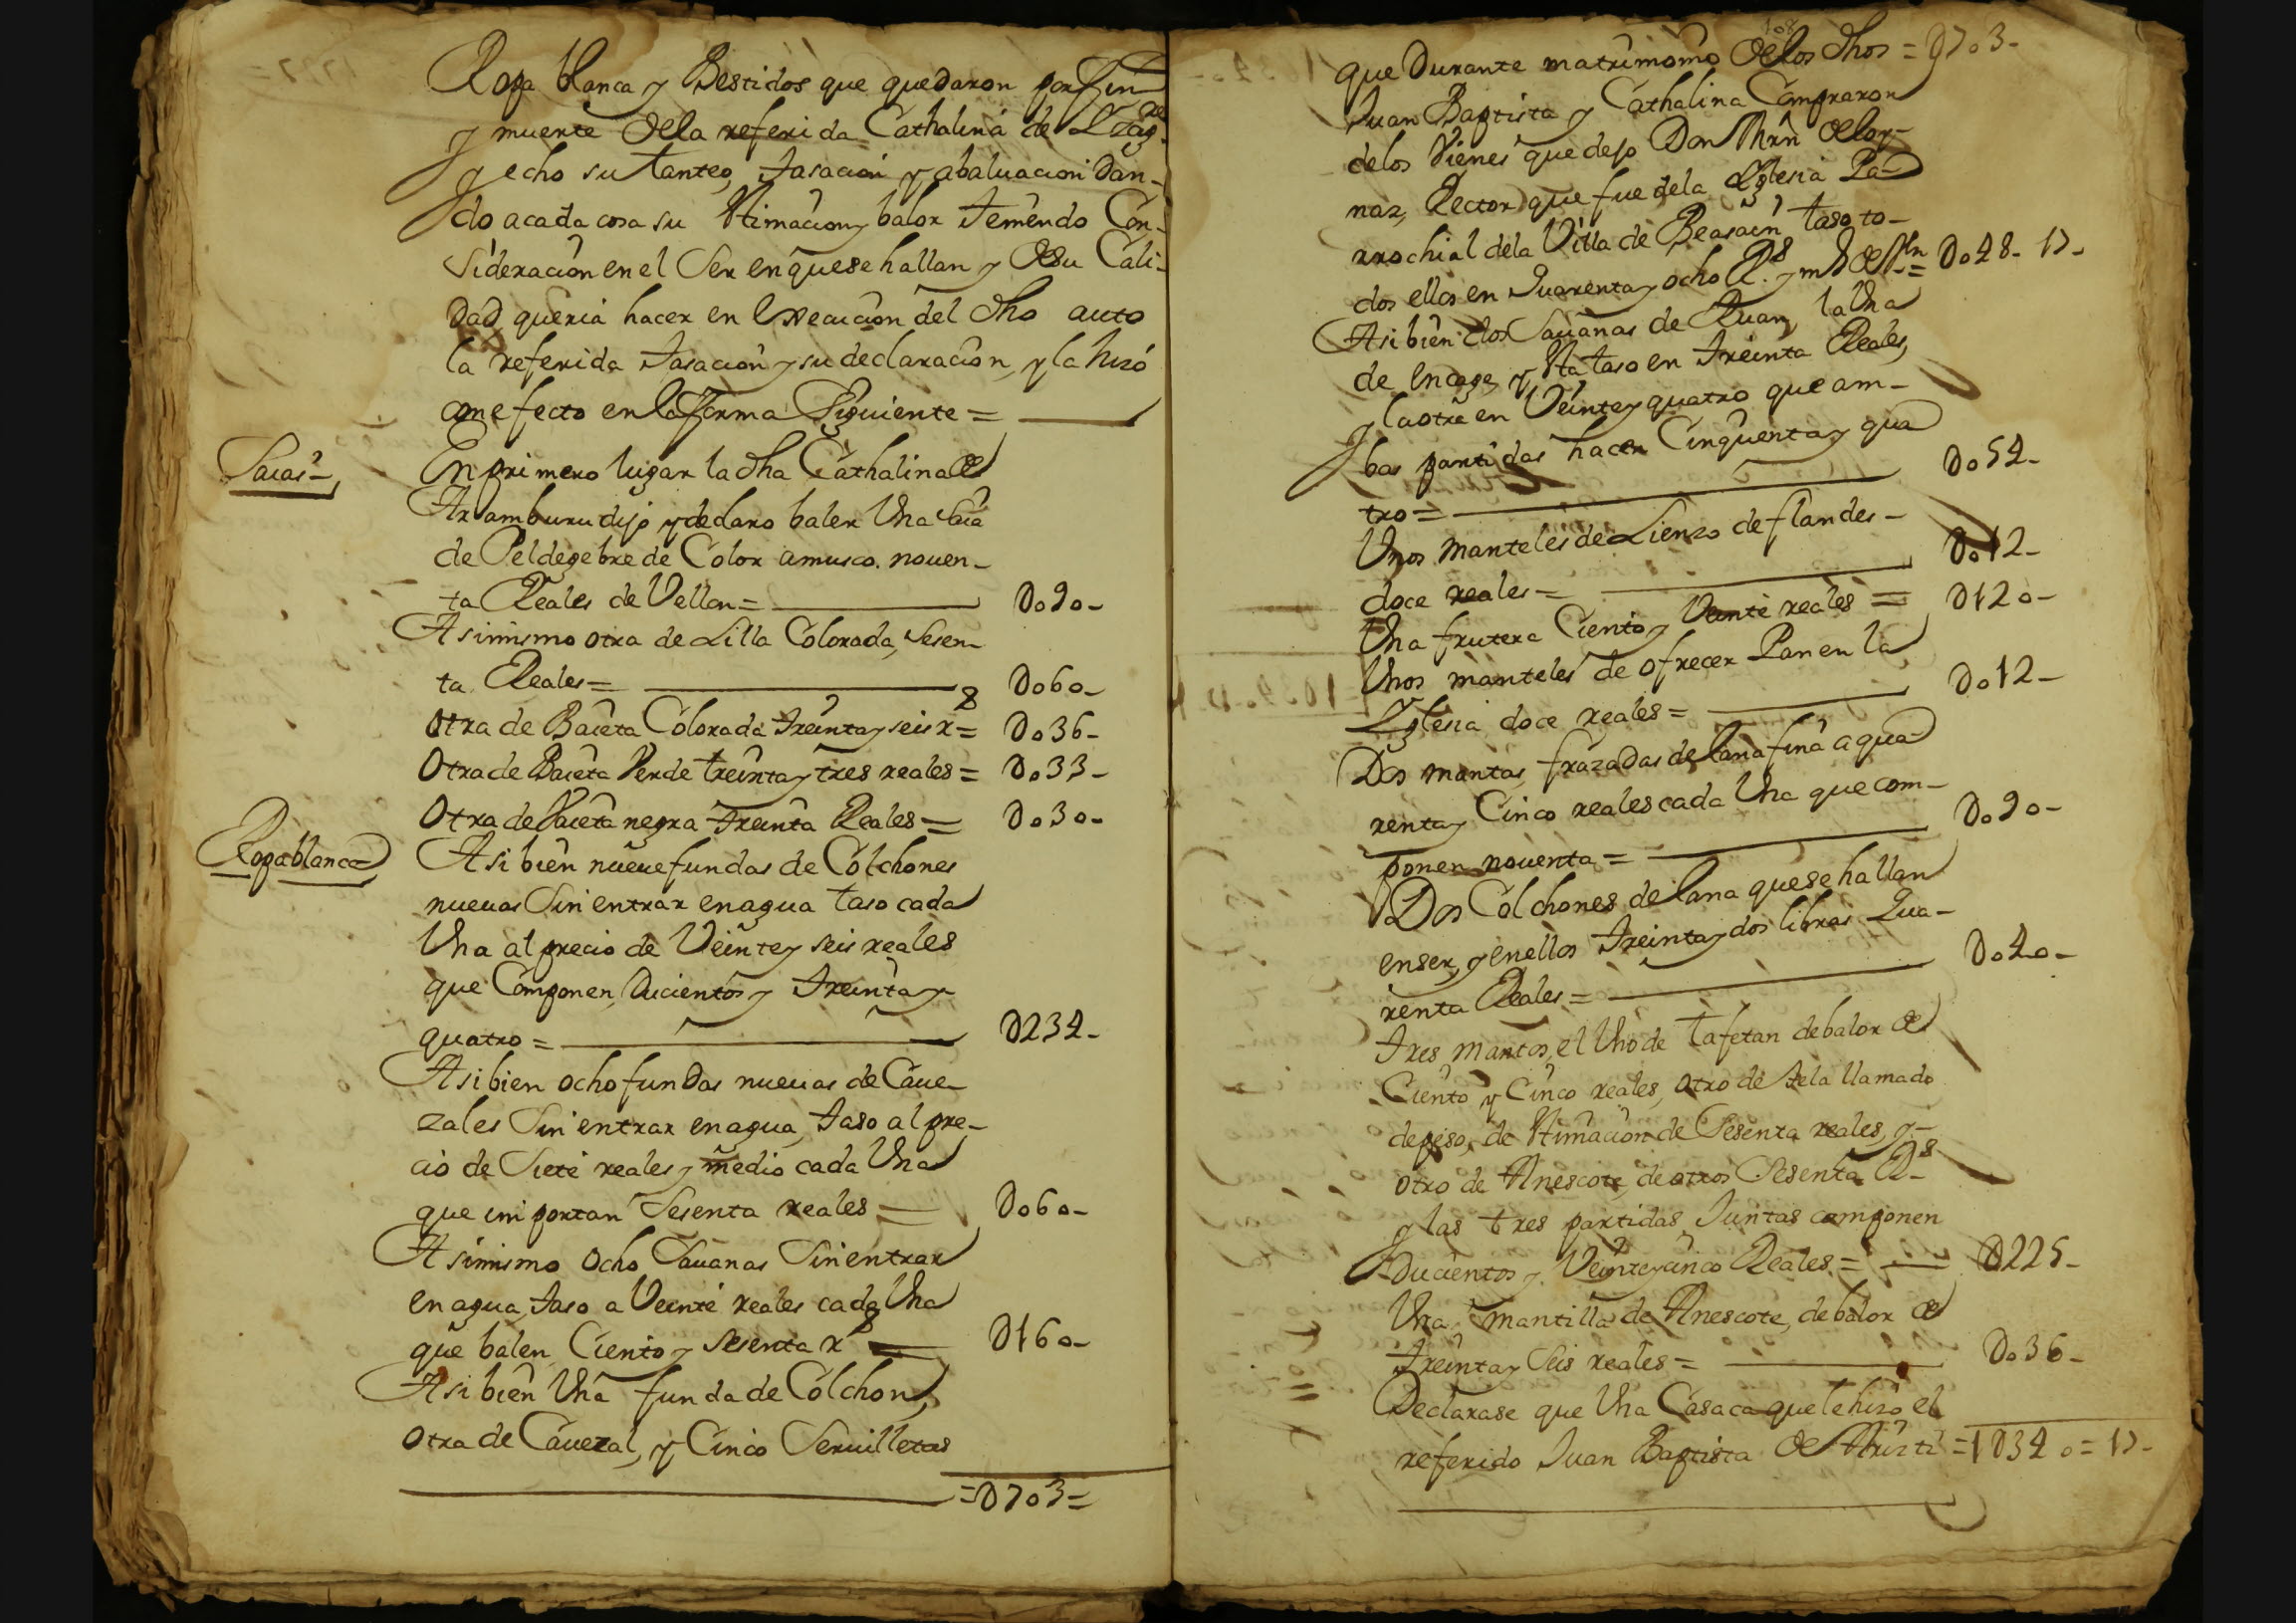 Ropa blanca y Bestidos que quedaron por fin
y muerte de la referida Cathalina de
y echo su tanteo, tasacion y abaluacion dan-
do a cada cosa su stimacion y balor teniendo Con-
sideracion en el Ser en que se hallan y de su Cali-
dad queria hacer en Execucion del dho auto
la referida tasacion y su declaracion, y la hizo
con efecto en la forma Siguiente =
Saias -
En primero lugar la dha Cathalina de
Aramburu dijo y declaro baler Una Saia
de Pel de gebre de Color amusco. noven-
ta Reales de Vellon = D090-
Asimismo otra de Lilla Colorada, Sesen-
ta Reales = D060-
Otra de Baieta Colorada treinta y seis rs = D036-
Otra de Baieta Verde treinta y tres reales = D033-
Otra de Baieta negra treinta Reales = D030-
Ropa blanca
Asi bien nueve fundas de Colchones
nuevas Sin entrar en agua taso cada
Una al precio de Veinte y seis reales
que Componen, Ducientos y treinta y
quatro = D234-
Asi bien ocho fundas nuevas de Cave-
zales Sin entrar en agua, taso al pre-
cio de Siete reales y medio cada Una
que importan Sesenta reales = D060-
Asimismo ocho Savanas Sin entrar
en agua, taso a Veinte reales cada Una
que balen Ciento y Sesenta rs = D160-
Asi bien Una funda de Colchon,
otra de Cavezal, y Cinco Servilletas
= D703 =
108
que Durante matrimonio de los dhos = D703-
Juan Baptista y Cathalina Compraron
de los Vienes que dejo Don Mrn de Loy-
naz, Rector que fue de la Yglesia Pa-
rrochial de la Villa de Beasain, taso to-
dos ellos en Quarenta y ocho Rs. y mo de Vln = D048- 17-
Asi bien dos Savanas de Ruan, la Una
de encage, y sta taso en treinta Reales,
y la otra en Veinte y quatro que am-
bas partidas hacen Cinquenta y qua
tro = D054-
Unos manteles de Lienzo de flandes -
doce reales = D012-
Una frutera Ciento y Veinte reales = D120-
Unos manteles de ofrecer Pan en la
Yglesia doce reales = D012-
Dos mantas frazadas de lana fina a qua
renta y Cinco reales cada Una que com-
ponen noventa = D090-
Dos Colchones de lana que se hallan
en ser, y en ellos treinta y dos libras Qua-
renta Reales = D040-
Tres mantos, el Uno de tafetan de balor de
Ciento y Cinco reales, otro de tela llamado
de peso, de stimacion de Sesenta reales, y-
otro de Anescote, de otros Sesenta Rs-
y las tres partidas Juntas componen
Ducientos y Veinte y cinco Reales = D225-
Una mantilla de Anescote, de balor de
treinta y Seis reales = D036-
Declarase que Una Casaca que le hizo el
referido Juan Baptista de = 1D340 = 17-